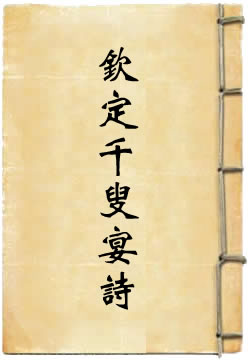 欽定千叟宴詩